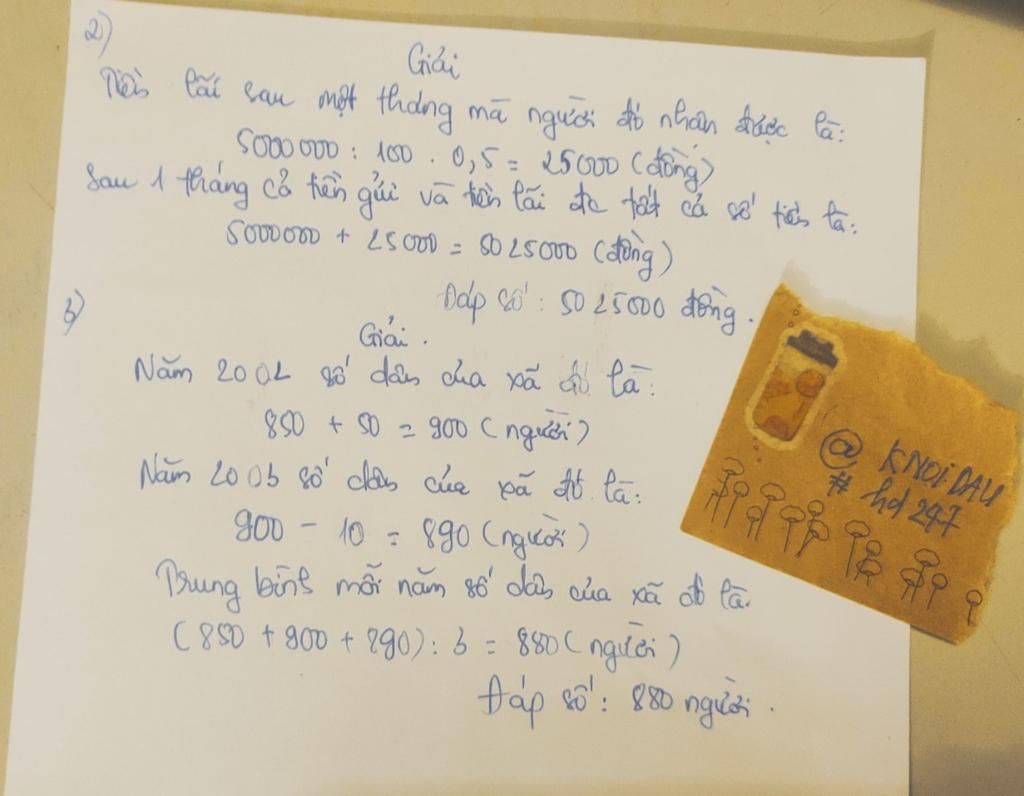 2)
Giải
Tiền lãi sau một tháng mà người đó nhận được là:
5000000 : 100 . 0,5 = 25000 (đồng)
Sau 1 tháng cả tiền gửi và tiền lãi đc tất cả số tiền là:
5000000 + 25000 = 5025000 (đồng)
Đáp số : 5025000 đồng.
3)
Giải.
Năm 2002 số dân của xã đó là:
850 + 50 = 900 (người)
Năm 2003 số dân của xã đó là:
900 - 10 = 890 (người)
Trung bình mỗi năm số dân của xã đó là:
(850 + 900 + 890) : 3 = 880 (người)
Đáp số : 880 người.
@ KNOIDAU
# hd247